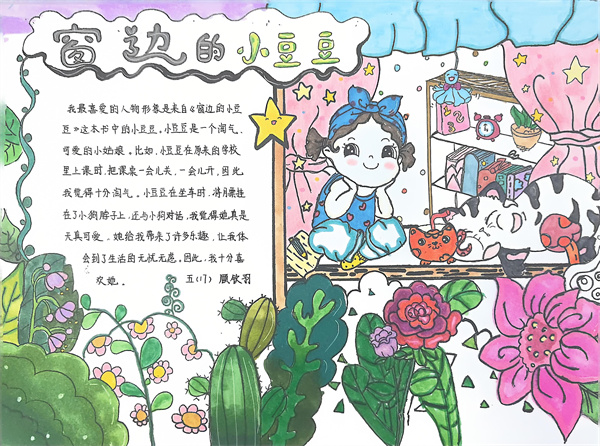 窗边的小豆豆
我最喜爱的人物形象是来自《窗边的小豆
豆》这本书中的小豆豆。小豆豆是一个淘气、
可爱的小姑娘。比如，小豆豆在原来的学校
里上课时，把课桌一会儿关，一会儿开，因此，
我觉得十分淘气。小豆豆在坐车时，将月票挂
在了小狗脖子上，还与小狗对话，我觉得她真是
天真可爱。她给我带来了许多乐趣，让我体
会到了生活的无忧无虑。因此，我十分喜
欢她。
五（17）顾钦羽